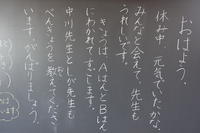 おはよう。
休み中、元気でいたかな。
みんなと会えて、先生も
うれしいです。
きょうは、AはんとBはん
にわかれてすごします。
中川先生としが先生も
べんきょうを教えてくださ
います。がんばりましょう。